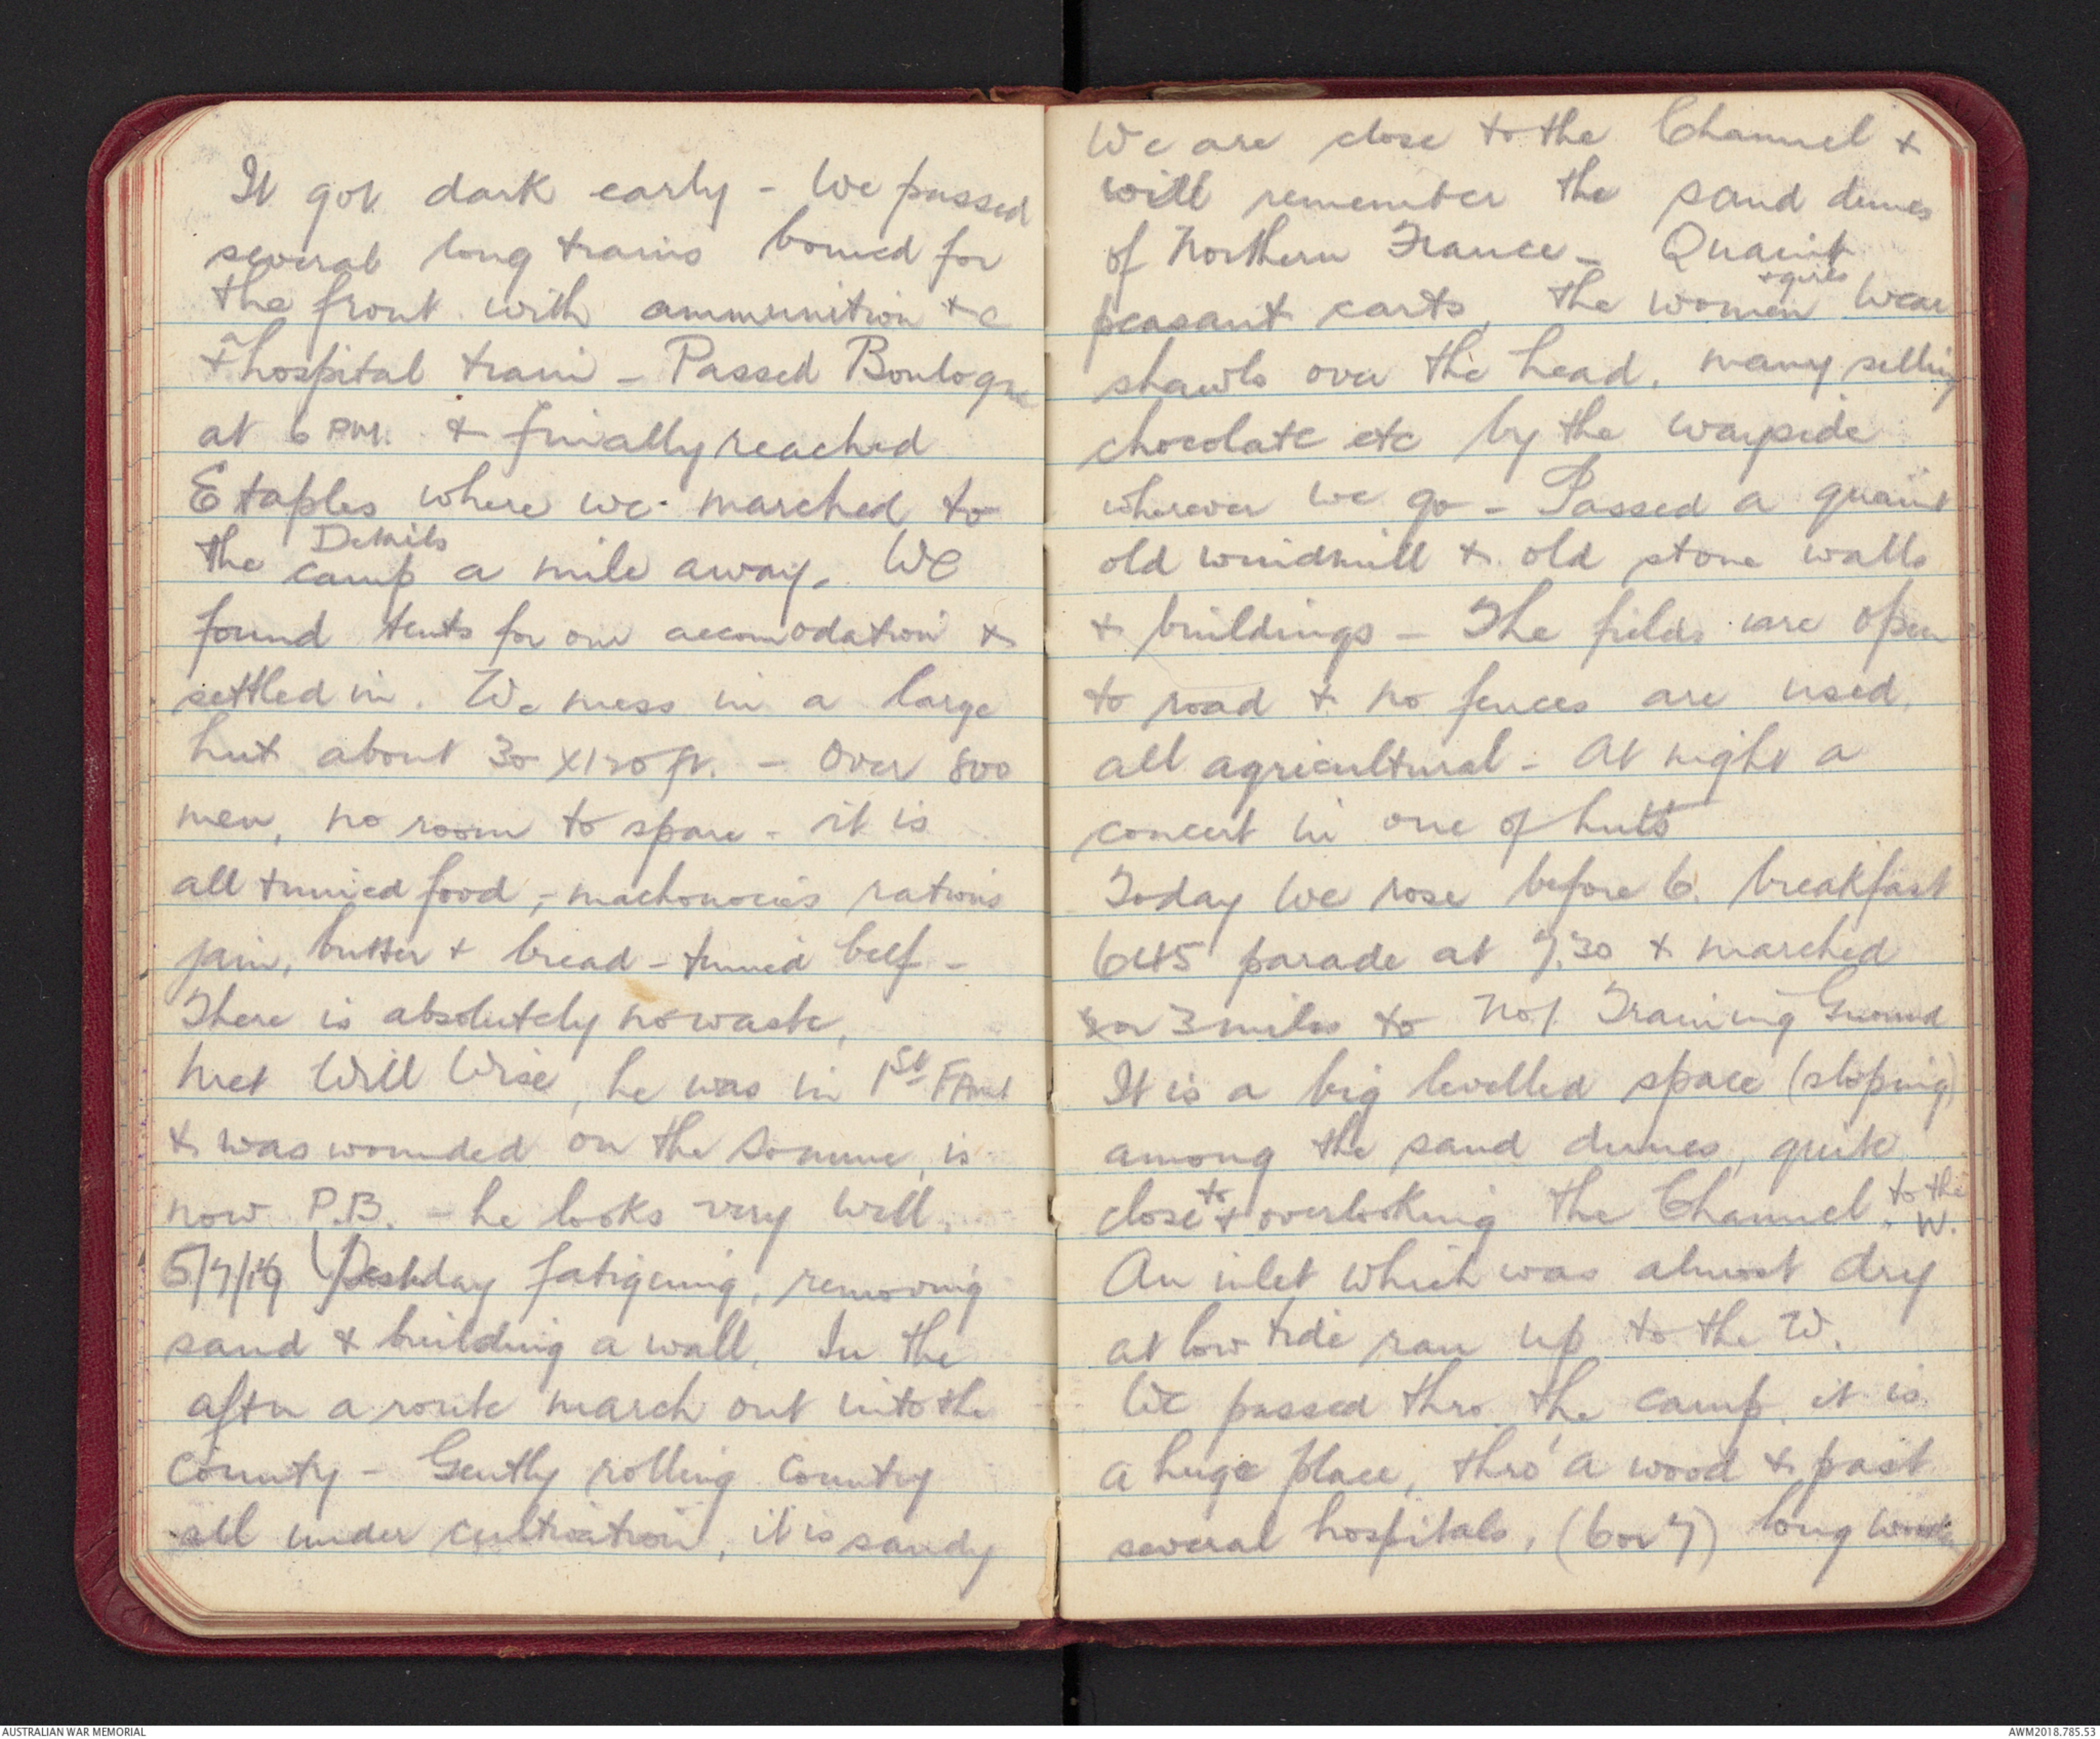 It got dark early - We passed
several long trains bound for
the front with ammunition &c
& a hospital train - Passed Boulogne
at 6 PM. & finally reached
Etaples where we marched to
the Details camp a mile away. We
found tents for our accomodation &
settled in. We mess in a large
hut about 30 x 120 ft. - Over 800
men, no room to spare - it is
all tinned food, - machonocies rations
jam, butter & bread - tinned beef -
There is absolutely no waste,
Met Will Wise, he was in 1st F Amb
& was wounded on the Somme, is
now P.B. - he looks very well.
5/7/ Yesterday fatiguing, removing
sand & building a wall. In the
aftn a route march out into the
County - Gently rolling Country
all under cultivation, it is sandy
We are close to the Channel &
will remember the sand dunes
of Northern France - Quaint
peasant carts, the women & girls wear
shawls over the head, many selling
chocolate etc by the wayside
wherever we go - Passed a quaint
old windmill & old stone walls
& buildings - The fields are open
to road & no fences are used,
all agricultural - At night a
concert in one of huts
Today we rose before 6. breakfast
645 parade at 7.30 & marched
2 or 3 miles to No 1 Training Ground
It is a big levelled space (sloping)
among the sand dunes, quite
close to & overlooking the Channel, to the W.
An inlet which was almost dry
at low tide ran up to the W.
We passed thro the camp it is
a huge place, thro' a wood & past
several hospitals, (6 or 7) long
AUSTRALIAN WAR MEMORIAL
AWM2018.785.53